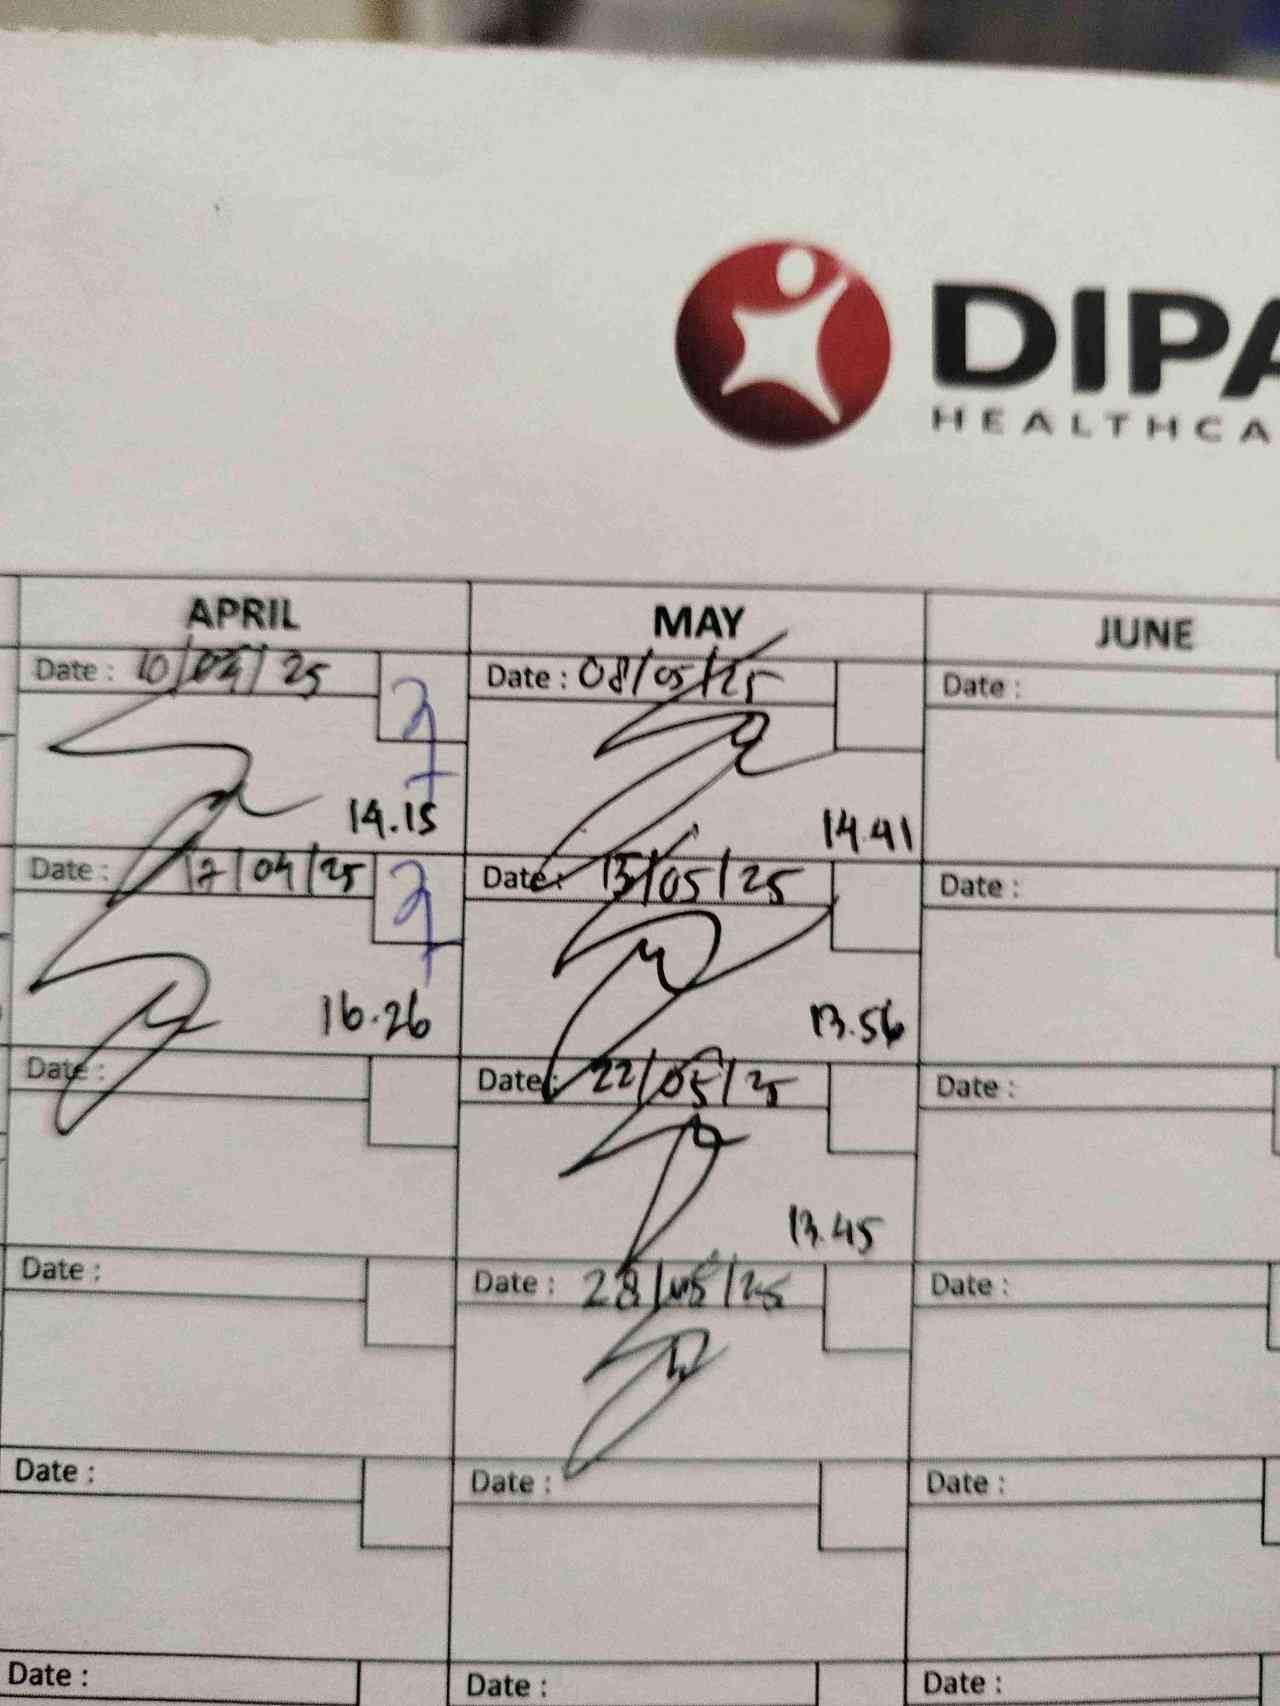 DIPA
HEALTHCA
APRIL MAY JUNE
Date : 10/04/25 Date : 08/05/25 Date :
14.15 14.41
Date : 17/04/25 Date : 15/05/25 Date :
16.26 13.56
Date : Date : 22/05/25 Date :
13.45
Date : Date : 28/05/25 Date :
Date : Date : Date :
Date : Date : Date :